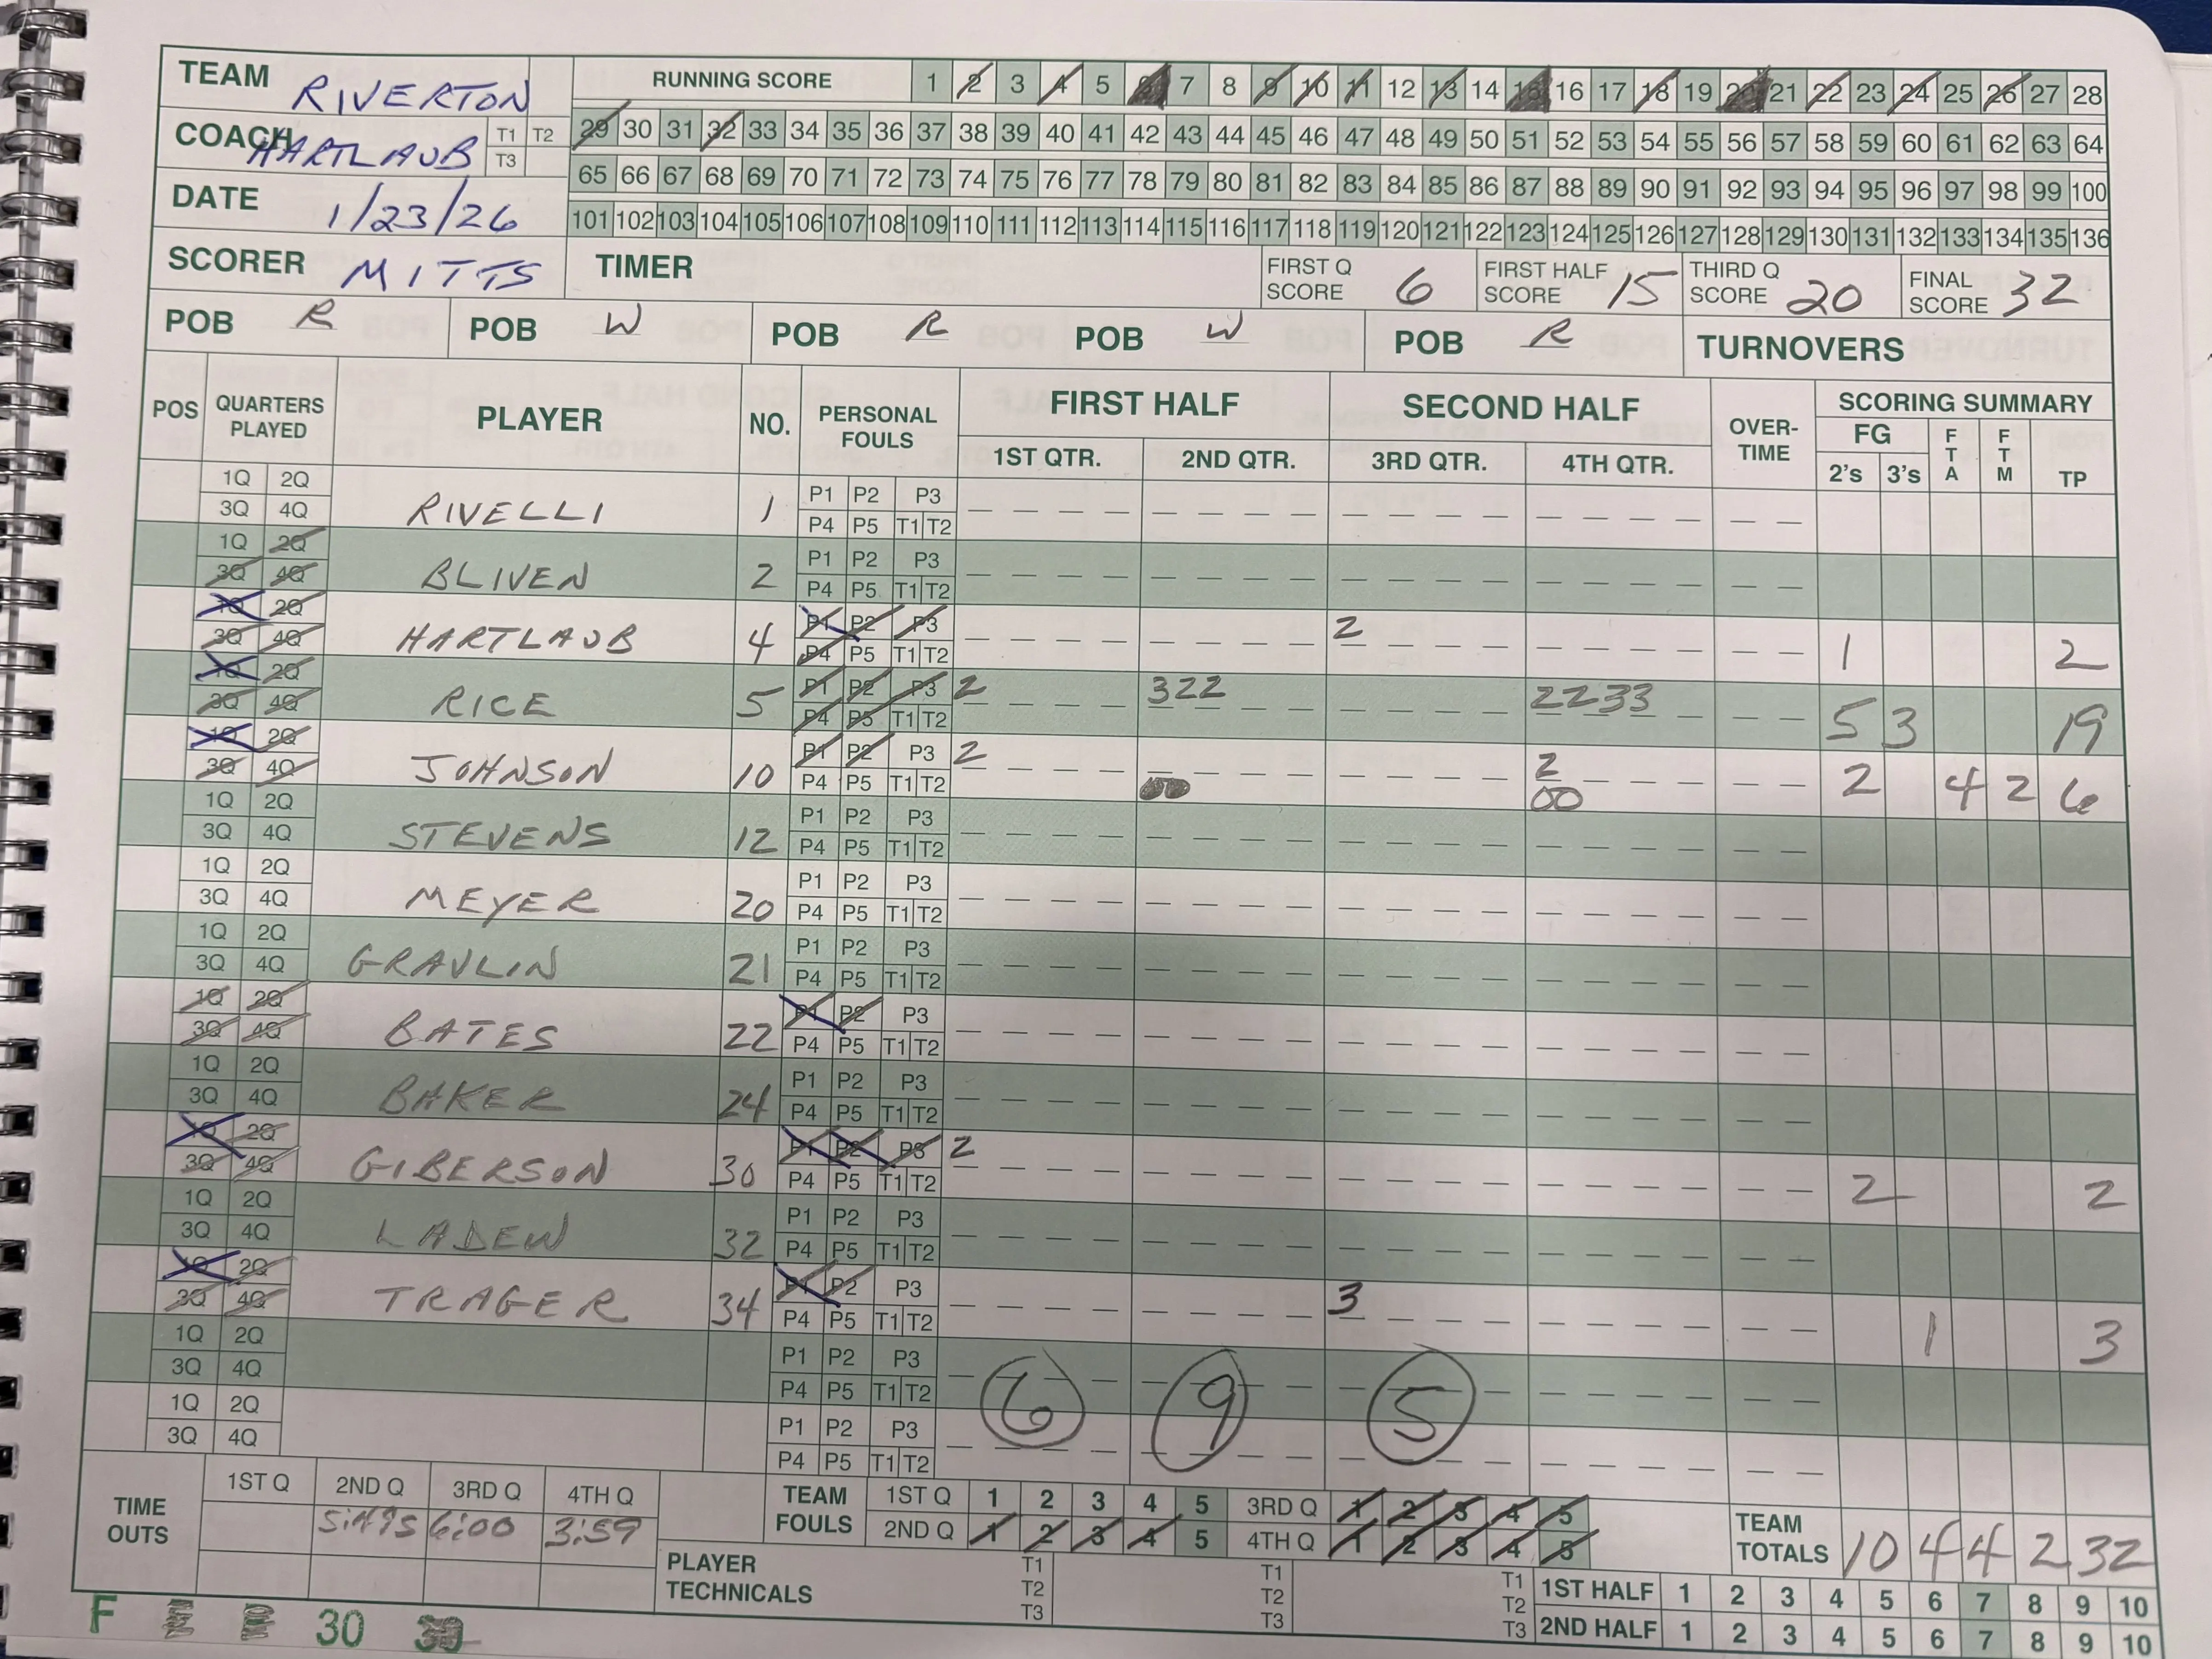 TEAM RIVERTON RUNNING SCORE 1 2 3 4 5 6 7 8 9 10 11 12 13 14 15 16 17 18 19 20 21 22 23 24 25 26 27 28
COACH HARTLAUB T1 T2 T3 29 30 31 32 33 34 35 36 37 38 39 40 41 42 43 44 45 46 47 48 49 50 51 52 53 54 55 56 57 58 59 60 61 62 63 64
DATE 1/23/26 65 66 67 68 69 70 71 72 73 74 75 76 77 78 79 80 81 82 83 84 85 86 87 88 89 90 91 92 93 94 95 96 97 98 99 100
101 102 103 104 105 106 107 108 109 110 111 112 113 114 115 116 117 118 119 120 121 122 123 124 125 126 127 128 129 130 131 132 133 134 135 136
SCORER MITTS TIMER FIRST Q SCORE 6 FIRST HALF SCORE 15 THIRD Q SCORE 20 FINAL SCORE 32
POB R POB W POB R POB W POB R TURNOVERS
POS QUARTERS PLAYED PLAYER NO. PERSONAL FOULS FIRST HALF SECOND HALF OVER-TIME SCORING SUMMARY
1ST QTR. 2ND QTR. 3RD QTR. 4TH QTR. FG 2's 3's FTA FTM TP
1Q 2Q RIVELLI 1 P1 P2 P3
3Q 4Q P4 P5 T1 T2
1Q 2Q BLIVEN 2 P1 P2 P3
3Q 4Q P4 P5 T1 T2
1Q 2Q HARTLAUB 4 P1 P2 P3 2 1 2
3Q 4Q P4 P5 T1 T2
1Q 2Q RICE 5 P1 P2 P3 2 322 2233 5 3 19
3Q 4Q P4 P5 T1 T2
1Q 2Q JOHNSON 10 P1 P2 P3 2 2 2 4 2 6
3Q 4Q P4 P5 T1 T2 00 00
1Q 2Q STEVENS 12 P1 P2 P3
3Q 4Q P4 P5 T1 T2
1Q 2Q MEYER 20 P1 P2 P3
3Q 4Q P4 P5 T1 T2
1Q 2Q GRAVLIN 21 P1 P2 P3
3Q 4Q P4 P5 T1 T2
1Q 2Q BATES 22 P1 P2 P3
3Q 4Q P4 P5 T1 T2
1Q 2Q BAKER 24 P1 P2 P3
3Q 4Q P4 P5 T1 T2
1Q 2Q GIBERSON 30 P1 P2 P3 2 2 2
3Q 4Q P4 P5 T1 T2
1Q 2Q LADEW 32 P1 P2 P3
3Q 4Q P4 P5 T1 T2
1Q 2Q TRAGER 34 P1 P2 P3 3 1 3
3Q 4Q P4 P5 T1 T2
1Q 2Q P1 P2 P3
3Q 4Q P4 P5 T1 T2 6 9 5
1Q 2Q P1 P2 P3
3Q 4Q P4 P5 T1 T2
TIME OUTS 1ST Q 2ND Q 3RD Q 4TH Q TEAM FOULS 1ST Q 1 2 3 4 5 3RD Q 1 2 3 4 5 TEAM TOTALS 10 4 4 2 32
6:00 3:59 2ND Q 1 2 3 4 5 4TH Q 1 2 3 4 5
PLAYER TECHNICALS T1 T2 T3 T1 T2 T3 T1 T2 T3 1ST HALF 1 2 3 4 5 6 7 8 9 10
2ND HALF 1 2 3 4 5 6 7 8 9 10
F 30